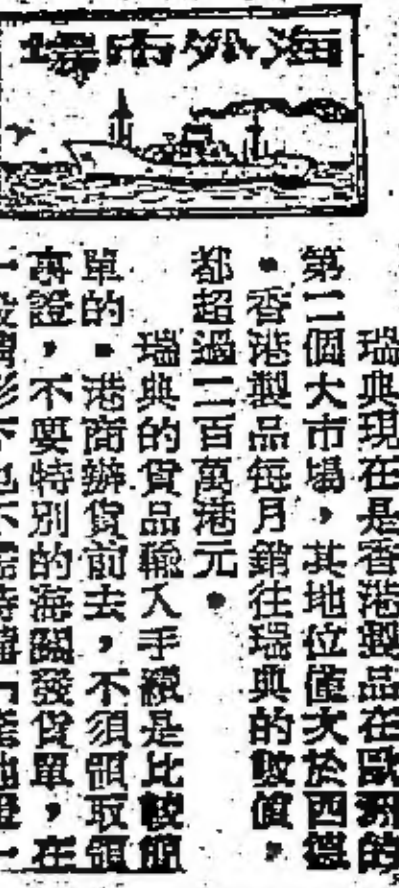 海外市場
瑞典現在是香港製品在歐洲的
第二個大市場，其地位僅次於西德
。香港製品每月銷往瑞典的數值，
都超過二百萬港元。
瑞典的貨品輸入手續是比較簡
單的。港商辦貨前去，不須領取領
事證，不要特別的海關發貨單，在
一般情形下也不需特備「產地證」